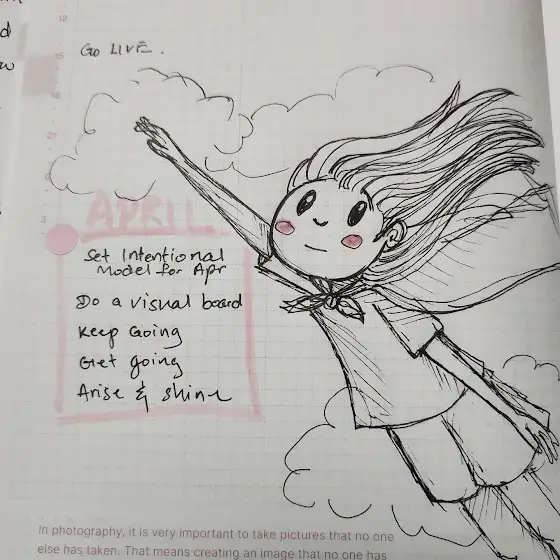 12
15
Go LIVE.
18
21
3
APRIL
Set Intentional
Model for Apr
Do a visual board
Keep Going
Get going
Arise & shine
In photography, it is very important to take pictures that no one
else has taken. That means creating an image that no one has